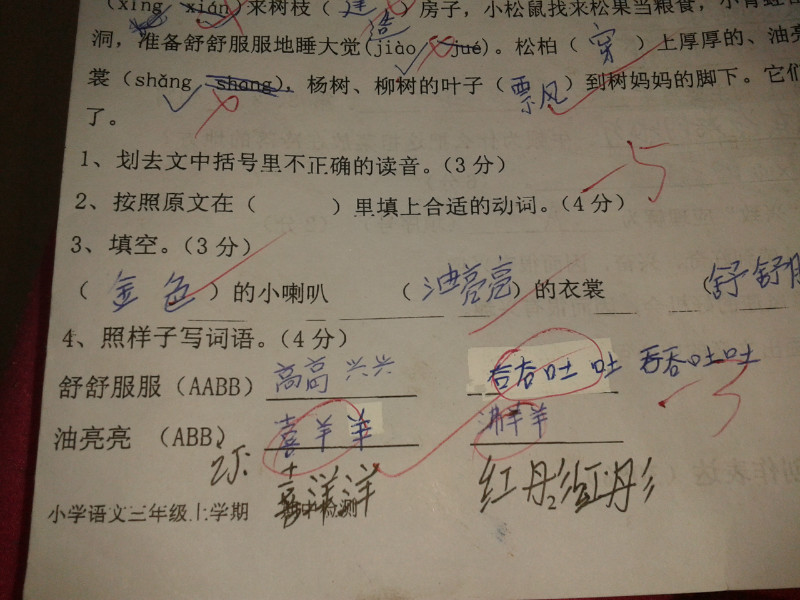 来树枝（造）房子，小松鼠找来松果当粮食，小青蛙
洞，准备舒舒服服地睡大觉(jiào jué)。松柏（穿）上厚厚的、油
裳（shǎng shang)，杨树、柳树的叶子（飘）到树妈妈的脚下。它们
了。
1、划去文中括号里不正确的读音。(3分) -5
2、按照原文在（ ）里填上合适的动词。(4分)
3、填空。(3分)
（金色）的小喇叭 （油亮亮）的衣裳 (舒舒服
4、照样子写词语。(4分)
舒舒服服（AABB）高高兴兴 吞吞吐吐 吞吞吐吐 -3
油亮亮 （ABB） 喜羊羊 洋羊
订: 喜洋洋 红彤彤 红彤彤
小学语文三年级上学期